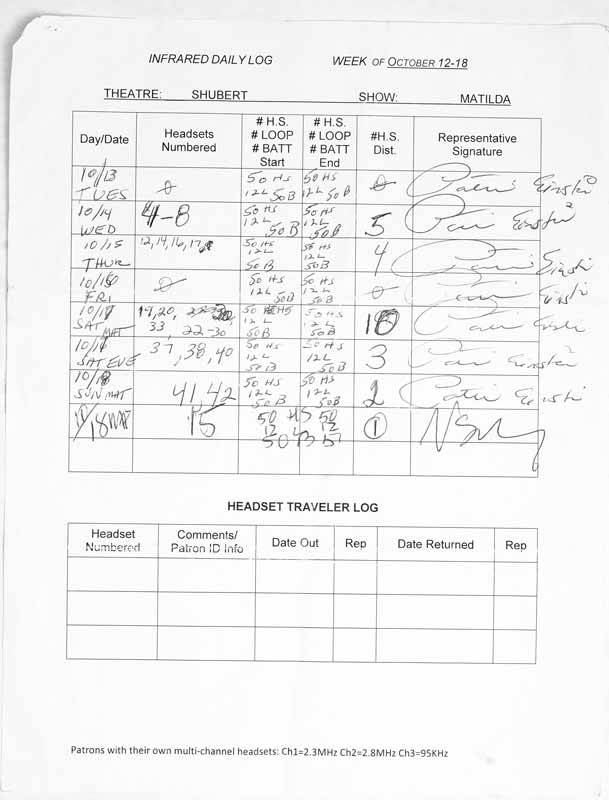 INFRARED DAILY LOG WEEK OF OCTOBER 12-18
THEATRE: SHUBERT SHOW: MATILDA
Day/Date
Headsets
Numbered
# H.S.
# LOOP
# BATT
Start
# H.S.
# LOOP
# BATT
End
#H.S.
Dist.
Representative
Signature
10/13
TUES
0
50 HS
12L 50B
50 HS
12L 50B
0
10/14
WED
4-8
50 HS
12L
50B
50 HS
12L
50B
5
10/15
THUR
12, 14, 16, 17
50 HS
12L
50B
50 HS
12L
50B
4
10/16
FRI
0
50 HS
12L 50B
50 HS
12L 50B
0
10/17
SAT MAT
19, 20,
33, 22-30
50 HS
12L
50B
50 HS
12L
50B
10/17
SAT EVE
37, 38, 40
50 HS
12L
50B
50 HS
12L
50B
3
10/18
SUN MAT
41, 42
50 HS
12L
50B
50 HS
12L
50B
2
18
15
50
12
50
50
12
1
HEADSET TRAVELER LOG
Headset
Numbered
Comments/
Patron ID Info
Date Out
Rep
Date Returned
Rep
Patrons with their own multi-channel headsets: Ch1=2.3MHz Ch2=2.8MHz Ch3=95KHz